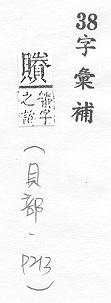 38字彙補
字
之譌
(貝部·P213)